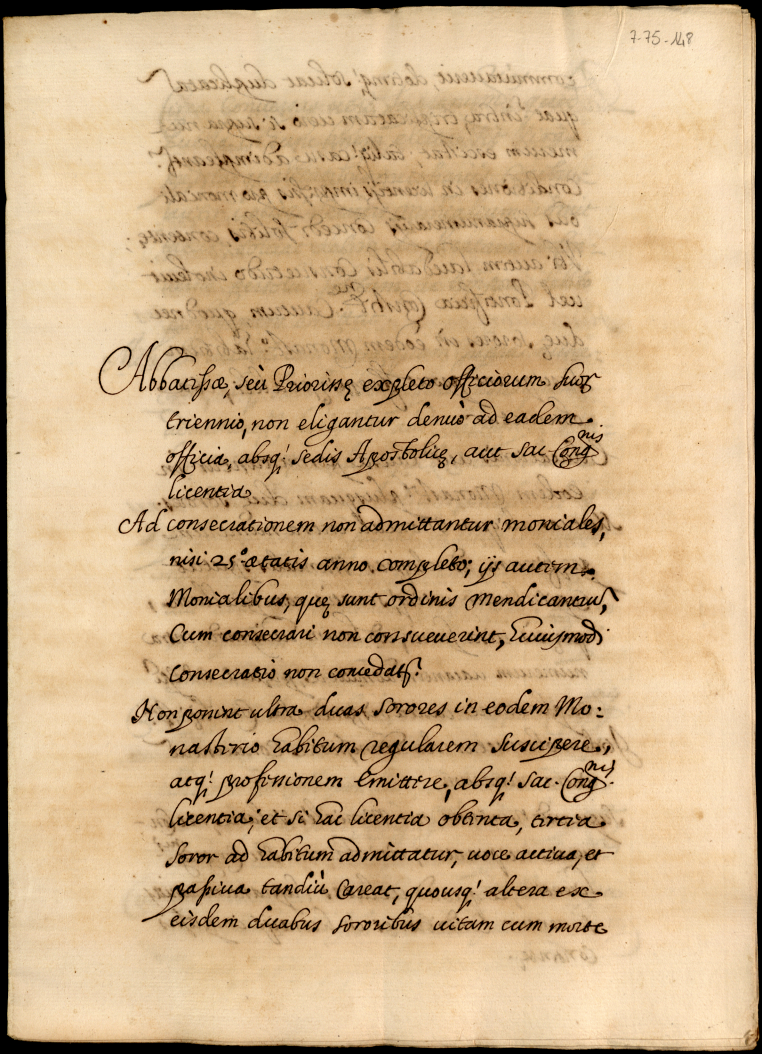 7-75-148
Abbatissæ, seu Priorissę expleto officiorum suor
triennio, non eligantur denuò ad eadem
officia, absq' sedis Apostolicę, aut sac. Cong.nis
licentia
Ad consecrationem non admittantur moniales,
nisi 25º ætatis anno completo; ijs autem
Monialibus, quę sunt ordinis Mendicantiu,
Cum consecrari non consueuerint, huiusmodi
Consecratio non concedatr.
Non possint ultra duas sorores in eodem Mo:
nasterio habitum regularem suscipere,
atq' professionem emittere, absq' sac. Cong.nis
licentia; et si hac licentia obtenta, tertia
soror ad habitum admittatur, uoce actiua, et
passiua tandiù Careat, quousq' altera ex
eisdem duabus sororibus uitam cum morte